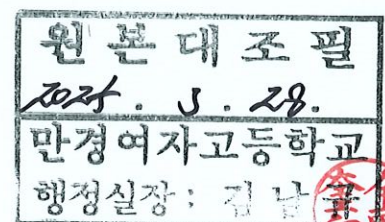 원본대조필
2025. 3. 28.
만경여자고등학교
행정실장 : 김남